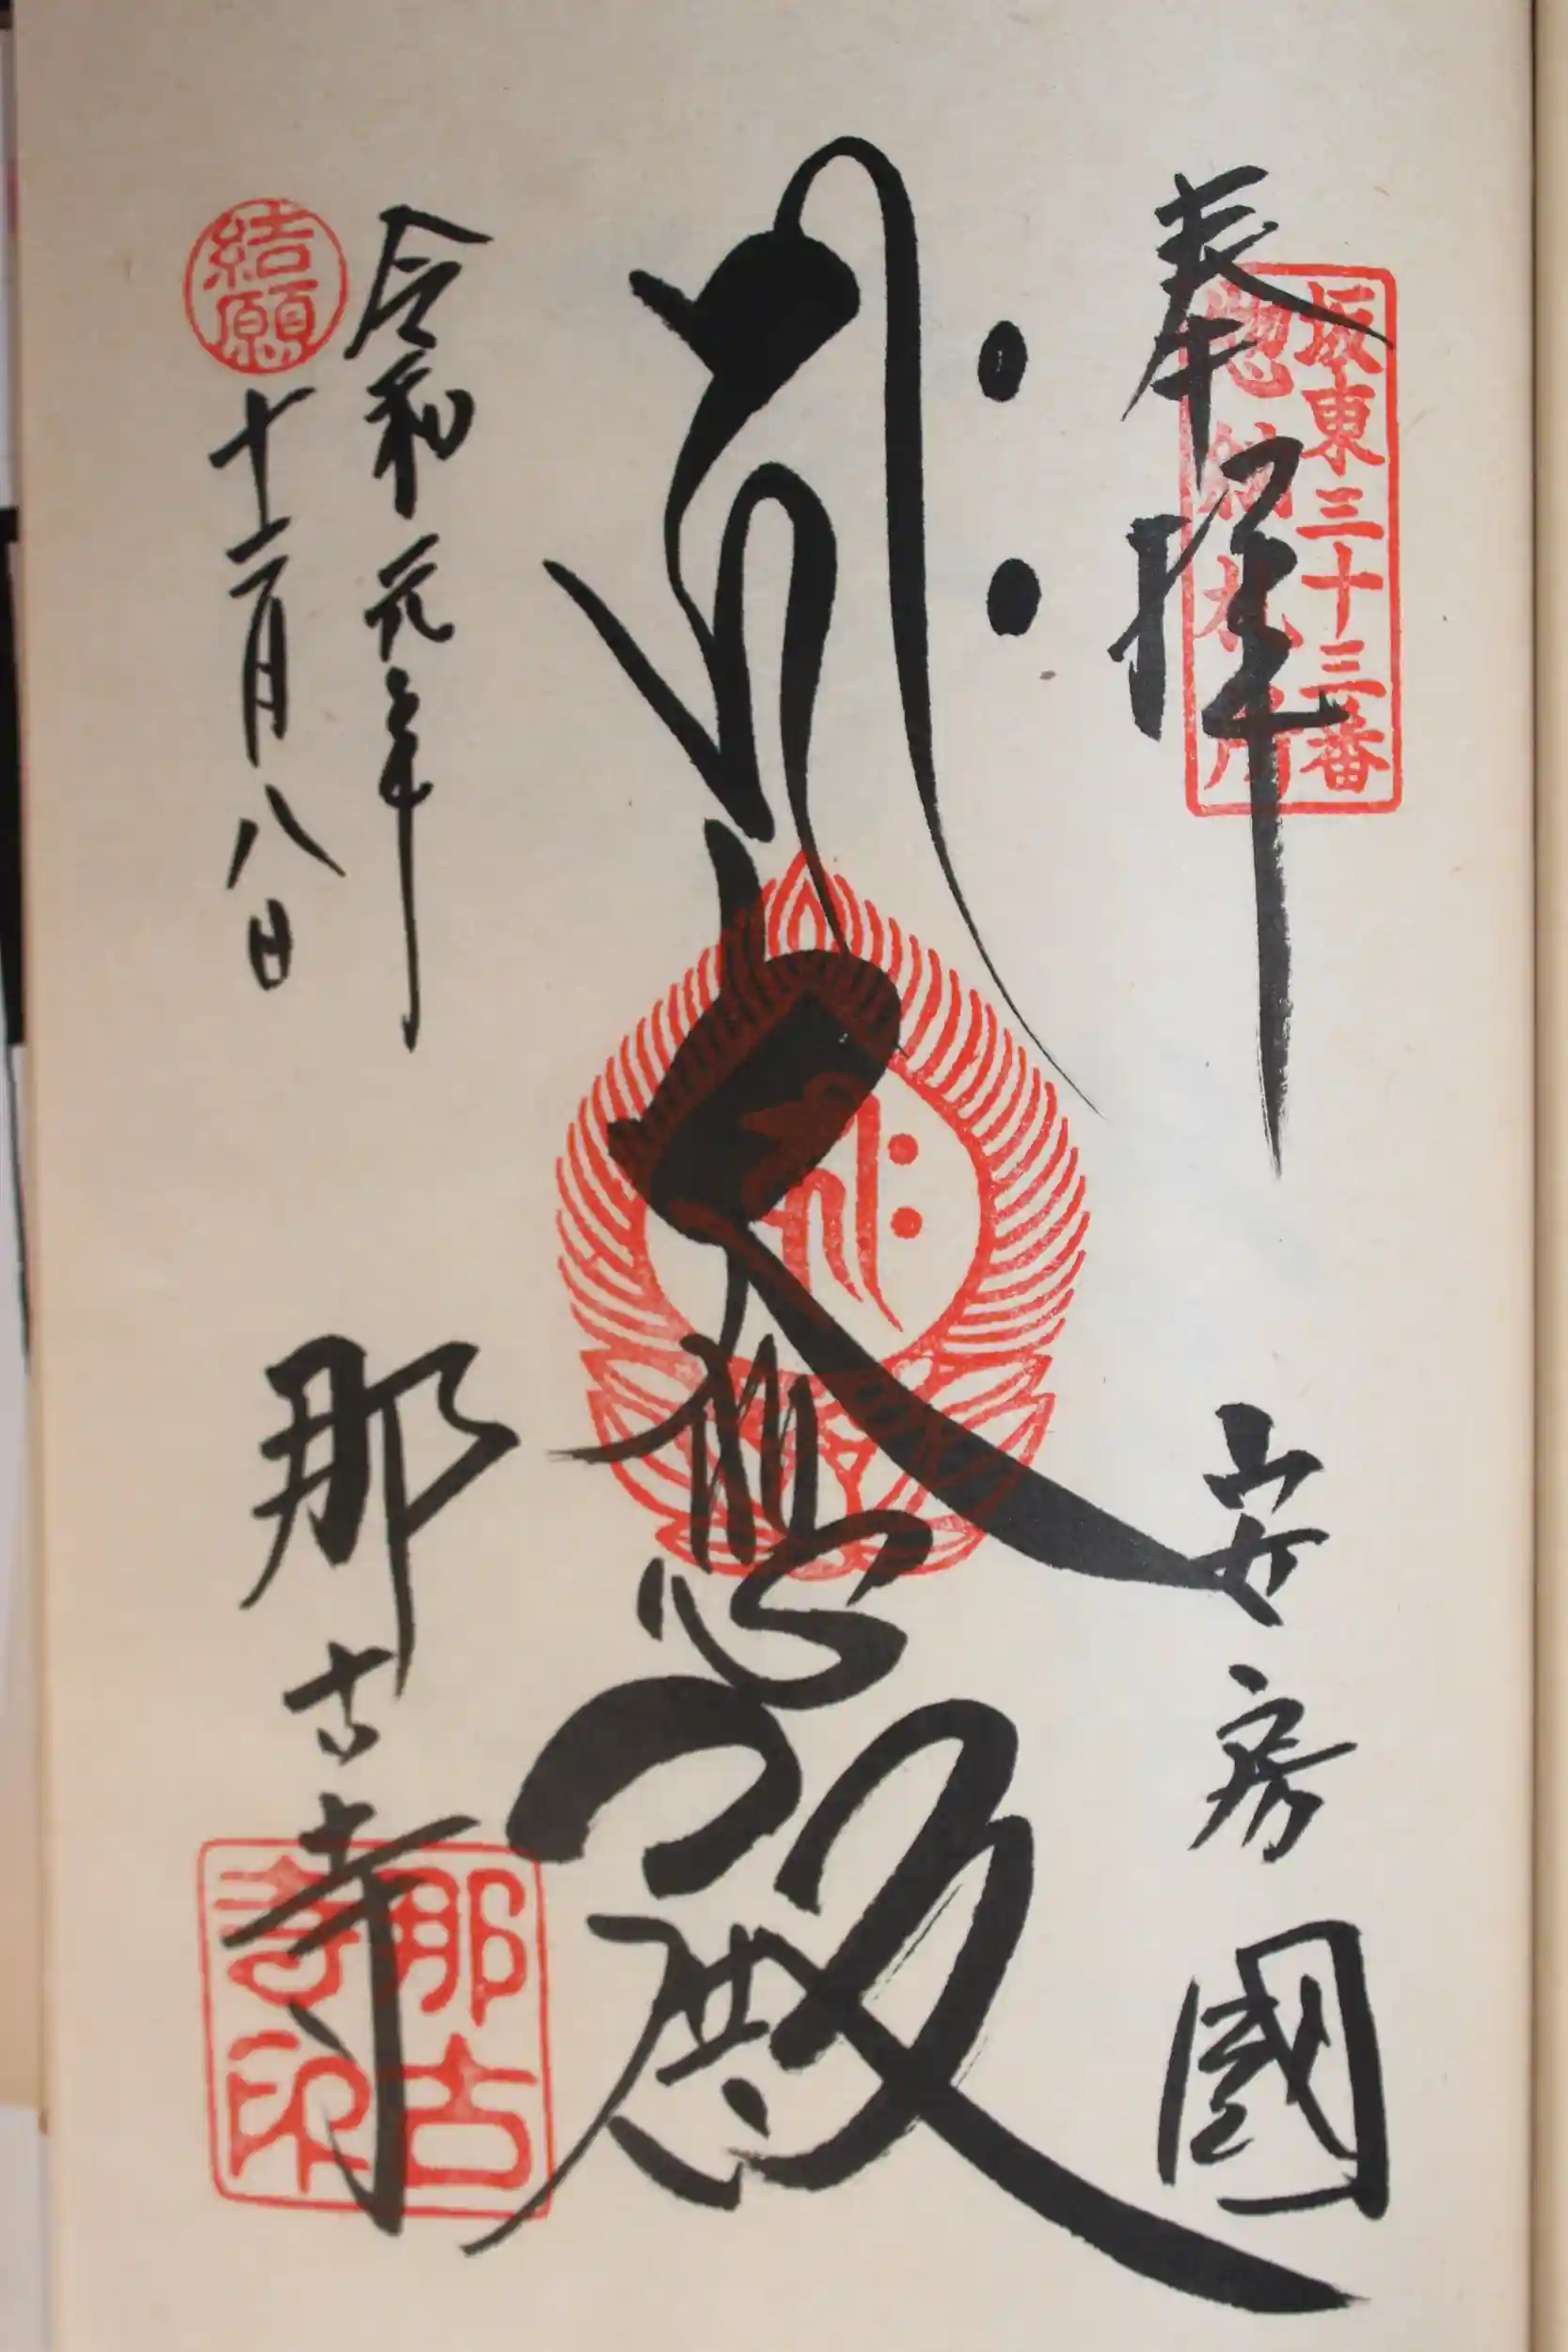 奉拝
坂東三十三番
惣納札所
安房國
キリーク
大悲殿
令和元年
十二月八日
結願
那古寺
那古
寺印